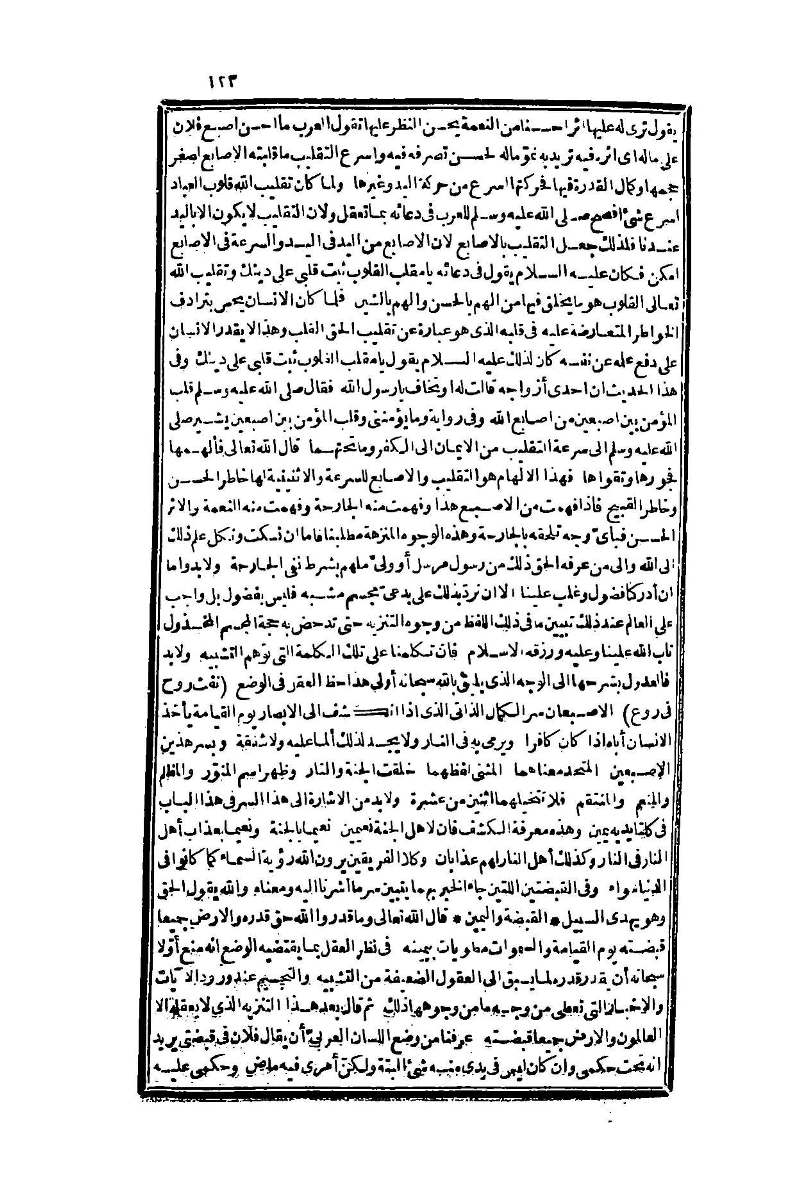 ١٢٣
يقول ترى له عليها اثرا حسنا من النعمة يحسن النظر عليها تقول العرب ما احسن اصبع فلان
على ماله اى اثره فيه تريد به نمو ماله لحسن تصرفه فيه واسرع التقليب ما قلبته الاصابع لصغر
حجمها وكمال القدرة فيها فحركتها اسرع من حركة اليد وغيرها ولما كان تقليب الله قلوب العباد
اسرع شئ افصح صلى الله عليه وسلم للعرب فى دعائه بما تعقل ولان التقليب لا يكون الا باليد
عندنا فلذلك جعل التقليب بالاصابع لان الاصابع من اليد فى اليد والسرعة فى الاصابع
امكن فكان عليه السلام يقول فى دعائه يا مقلب القلوب ثبت قلبى على دينك وتقليب الله
تعالى القلوب هو ما يخلق فيها من الهم بالحسن والهم بالشين فلما كان الانسان يحس بترادف
الخواطر المتعارضة عليه فى قلبه الذى هو عبارة عن تقليب الحق القلب وهذا لا يقدر الانسان
على دفع علمه عن نفسه كان لذلك عليه السلام يقول يا مقلب القلوب ثبت قلبى على دينك وفى
هذا الحديث ان احدى أزواجه قالت له او تخاف يا رسول الله فقال صلى الله عليه وسلم قلب
المؤمن بين اصبعين من اصابع الله وفى رواية وما يؤمننى وقلب المؤمن بين اصبعين يشير صلى
الله عليه وسلم الى سرعة التقليب من الايمان الى الكفر وما تحتهما قال الله تعالى فألهمها
فجورها وتقواها فهذا الالهام هو التقليب والاصابع للسرعة والاثنينية لها خاطر الحسن
وخاطر القبيح فاذا فهمت من الاصبع هذا وفهمت منه الجارحة وفهمت منه النعمة والاثر
الحسن فبأى وجه تلحقه بالجارحة وهذه الوجوه المنزهة تطلبنا فاما ان نسكت ونكل علم ذلك
الى الله والى من عرفه الحق ذلك من رسول مرسل أو ولى ملهم بشرط نفى الجارحة ولا بد واما
ان أدركنا فضول وغلب علينا الا ان نرد بذلك على بدعى مجسم مشبه فليس بفضول بل واجب
على العالم عند ذلك تبيين ما فى ذلك اللفظ من وجوه التنزيه حتى تدحض به حجة المجسم المخذول
تاب الله علينا وعليه ورزقه الاسلام فان تكلمنا على تلك الكلمة التى توهم التشبيه ولا بد
فالعدول بشرحها الى الوجه الذى يليق بالله سبحانه أولى هذا حظ العقل فى الوضع (نفث روح
فى روع) الاصبعان سر الكمال الذاتى الذى اذا انكشف الى الابصار يوم القيامة يأخذ
الانسان أباه اذا كان كافرا ويرمى به فى النار ولا يجد لذلك ألما عليه ولا شفقة وبسر هذين
الاصبعين المتحد معناهما المثنى لفظهما خلقت الجنة والنار وظهر اسم المنور والمظلم
والمنعم والمنتقم فلا تتخيلهما اثنين من عشرة ولا بد من الاشارة الى هذا السر فى هذا الباب
فى كلتا يديه يمين وهذه معرفة الكشف فان لاهل الجنة نعيمين نعيما بالجنة ونعيما بعذاب أهل
النار فى النار وكذلك أهل النار لهم عذابان وكلا الفريقين يرون الله رؤية السماء كما كانوا فى
الدنيا سواء وفى القبضتين اللتين جاء الخبر بهما يتبين سر ما أشرنا اليه ومعناه والله يقول الحق
وهو يهدى السبيل * القبضة واليمين * قال الله تعالى وما قدروا الله حق قدره والارض جميعا
قبضته يوم القيامة والسموات مطويات بيمينه فى نظر العقل بما يقتضيه الوضع انه منع أولا
سبحانه أن يقدر قدره لما يسبق الى العقول الضعيفة من التشبيه والتجسيم عند ورود الآيات
والاخبار التى تعطى من وجه ما من وجوهها ذلك ثم قال بعد هذا التنزيه الذى لا يعقله الا
العالمون والارض جميعا قبضته عرفنا من وضع اللسان العربى أن يقال فلان فى قبضتى يريد
انه تحت حكمى وان كان ليس فى يدى منه شئ البتة ولكن أمرى فيه ماض وحكمى عليه